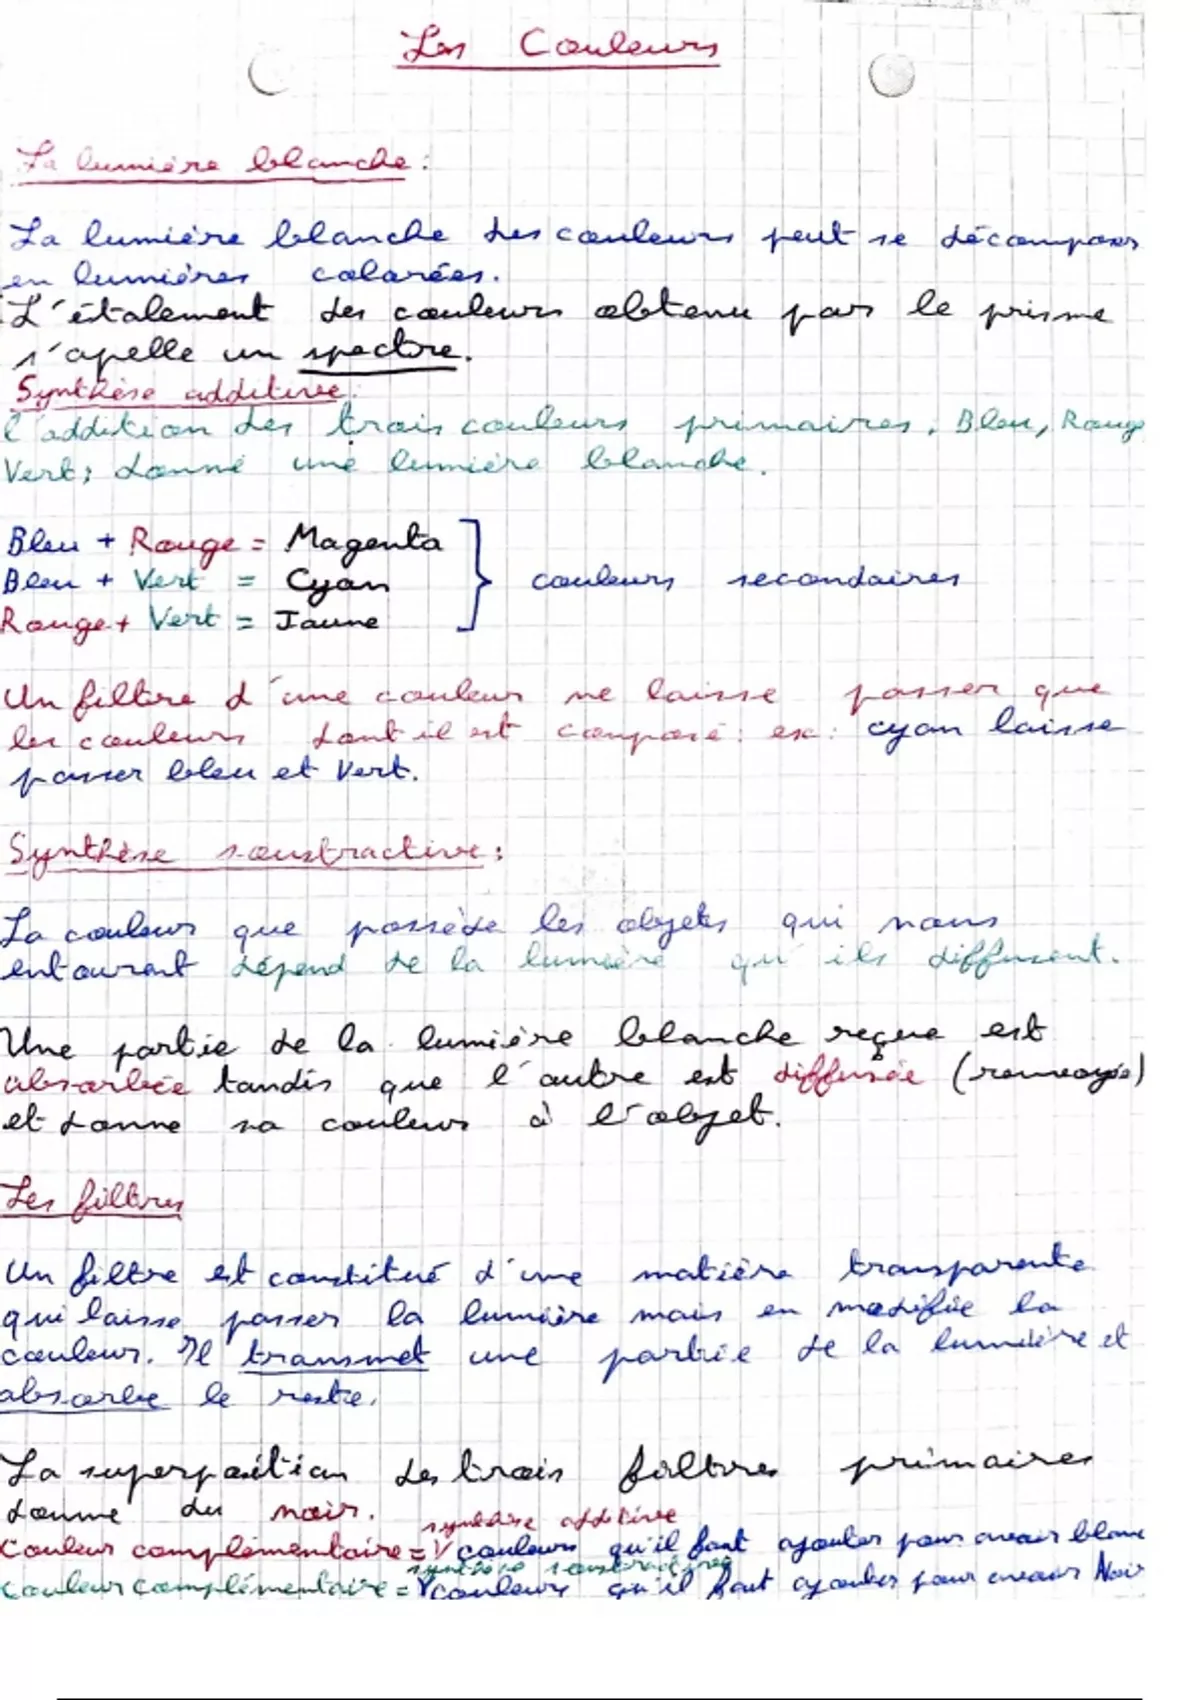 Les Couleurs
La lumière blanche :
La lumière blanche des couleurs peut se décomposer
en lumières colorées.
L'étalement des couleurs obtenu par le prisme
s'apelle un spectre.
Synthèse additive :
l'addition des trois couleurs primaires, Bleu, Rouge
Vert; donne une lumière blanche.
Bleu + Rouge = Magenta
Bleu + Vert = Cyan
Rouge + Vert = Jaune
} couleurs secondaires
Un filtre d'une couleur ne laisse passer que
les couleurs dont il est composé : ex : cyan laisse
passer bleu et Vert.
Synthèse soustractive :
La couleur que possède les objets qui nous
entourent dépend de la lumière qu'ils diffusent.
Une partie de la lumière blanche reçue est
absorbée tandis que l'autre est diffusée (renvoyée)
et donne sa couleur à l'objet.
Les filtres
Un filtre est constitué d'une matière transparente
qui laisse passer la lumière mais en modifie la
couleur. Il transmet une partie de la lumière et
absorbe le reste.
La superposition des trois filtres primaires
donne du noir.
synthèse additive
Couleur complémentaire = V couleurs qu'il faut ajouter pour avoir blanc
synthèse soustractive
Couleur complémentaire = V couleurs qu'il faut ajouter pour avoir Noir